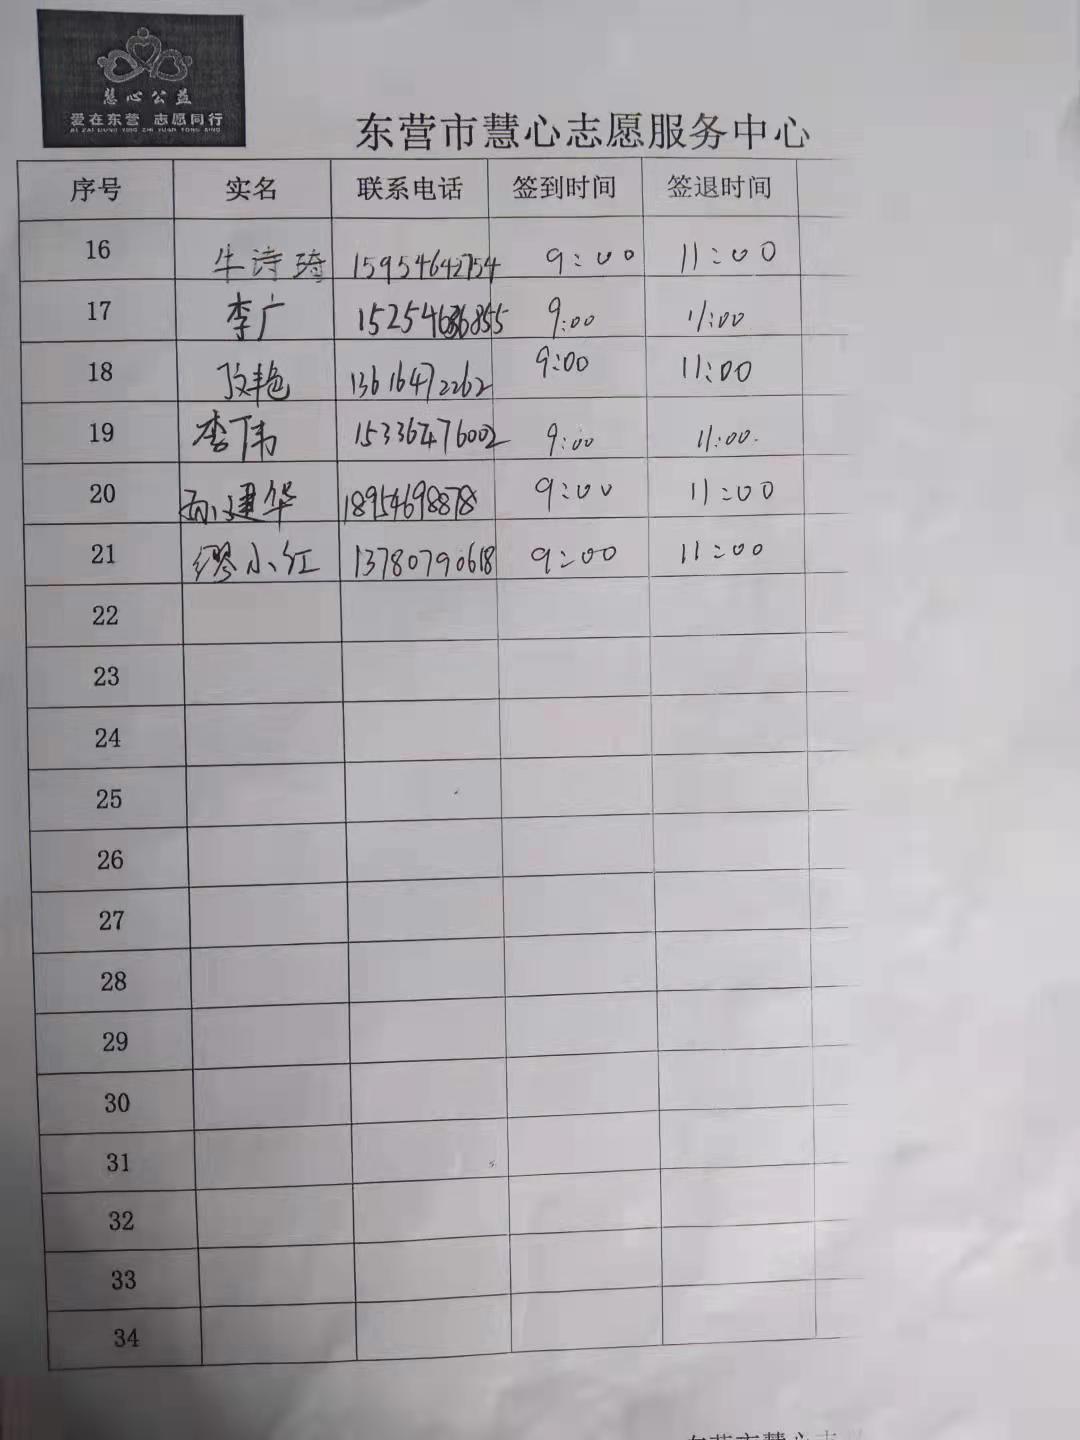 慧心公益
爱在东营 志愿同行
AI ZAI DONG YING ZHI YUAN TONG XING
东营市慧心志愿服务中心
序号 实名 联系电话 签到时间 签退时间
16 牛诗琦 15954642754 9:00 11:00
17 李广 9:00 11:00
18 13616472262 9:00 11:00
19 李伟 15336476002 9:00 11:00.
20 孙建华 18954698878 9:00 11:00
21 缪小红 13780790618 9:00 11:00
22
23
24
25
26
27
28
29
30
31
32
33
34
东营市慧心志